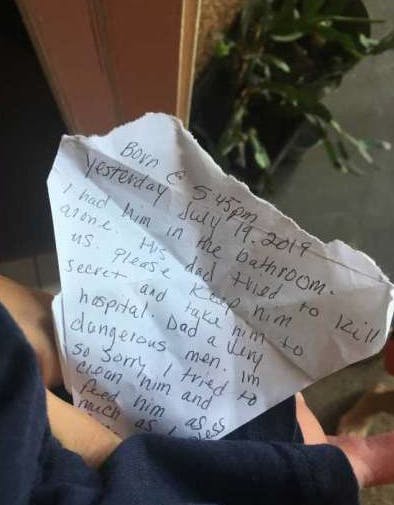 Born @ 5:45pm
Yesterday July 19, 2019
I had him in the bathroom.
alone. His dad tried to kill
us. please keep him
secret and take him to
hospital. Dad a very
dangerous men. Im
so sorry I tried to
clean him and
feed him as
much as I